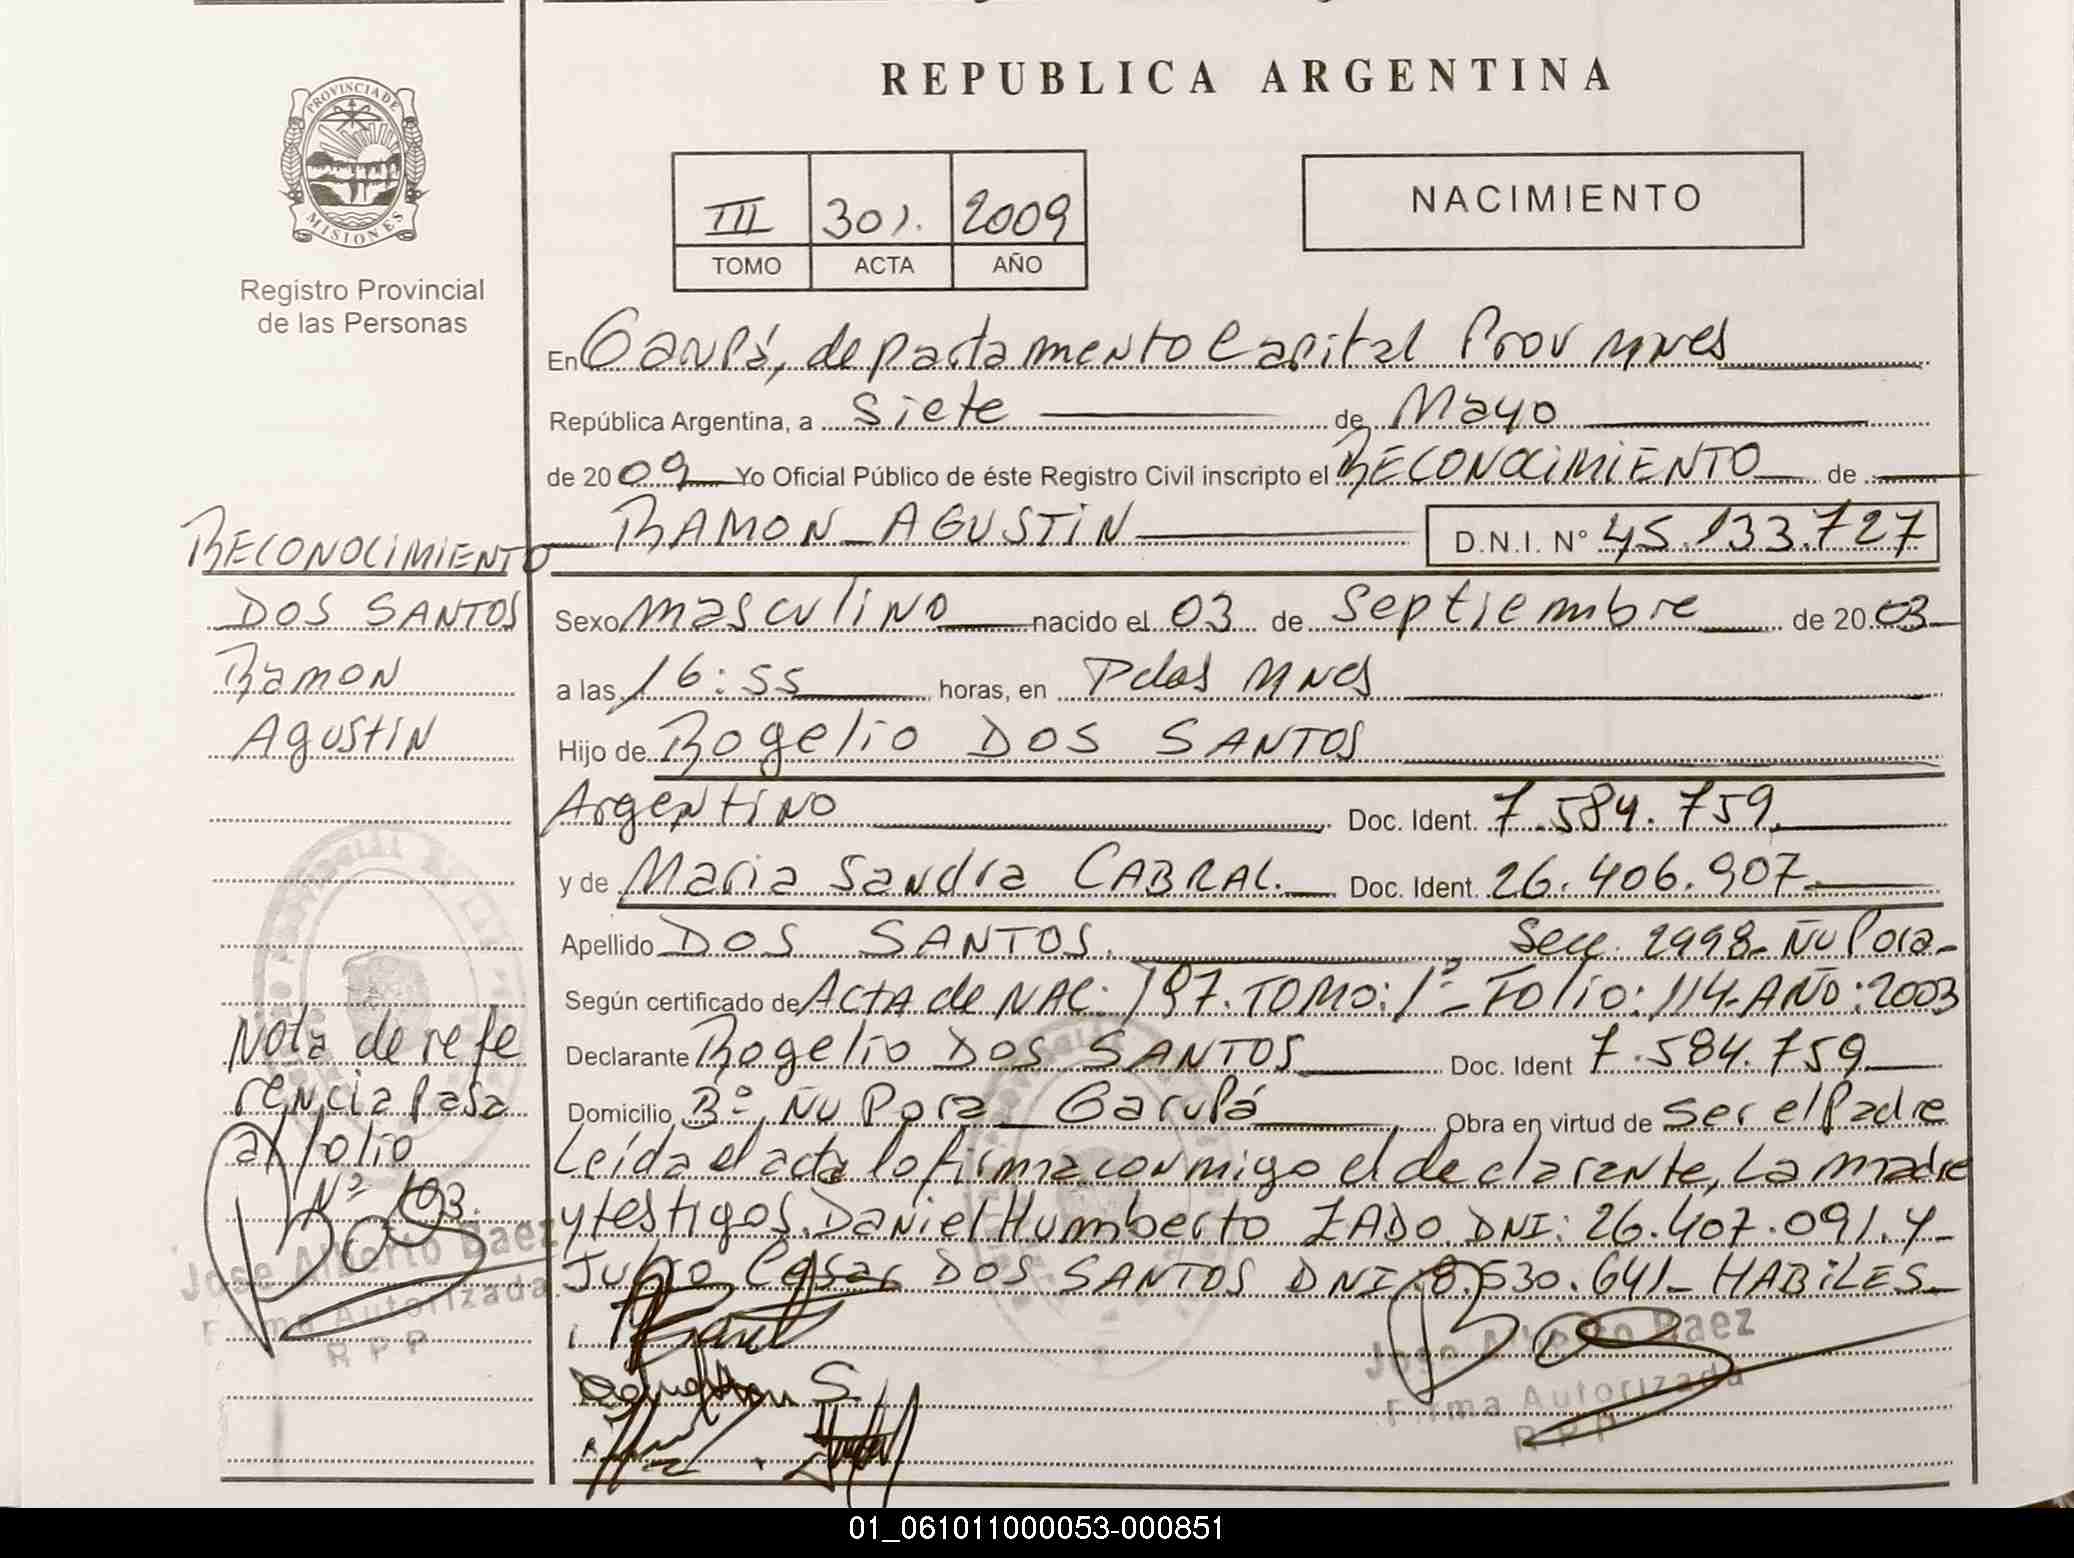 REPUBLICA ARGENTINA
PROVINCIA DE
MISIONES
Registro Provincial
de las Personas
III 301. 2009
TOMO ACTA AÑO
NACIMIENTO
En Garupá, departamento Capital Prov Mnes
República Argentina, a Siete de Mayo
de 2009 Yo Oficial Público de éste Registro Civil inscripto el RECONOCIMIENTO de
RAMON AGUSTIN D.N.I. N° 45.133.727
RECONOCIMIENTO
DOS SANTOS
Ramon
Agustin
Sexo masculino nacido el 03 de Septiembre de 2003
a las 16:55 horas, en Pdas Mnes
Hijo de Rogelio DOS SANTOS
Argentino Doc. Ident. 7.584.759
y de Maria Sandra CABRAL. Doc. Ident. 26.406.907
Apellido DOS SANTOS. Secc. 2998- Ñu Pora-
Según certificado de Acta de NAC: 197. TOMO: 1°- Folio: 114- AÑO: 2003
Declarante Rogelio DOS SANTOS Doc. Ident 7.584.759
Domicilio B° Ñu Pora Garupá Obra en virtud de Ser el Padre
Leída el acta lo firma conmigo el declarante, La madre
y testigos. Daniel Humberto ZADO DNI: 26.407.091. y-
Julio Cesar DOS SANTOS DNI 8.530.641- HABILES-
Nota de refe
rencia Pasa
al folio
N° 193.
Jose Alberto Baez
Firma Autorizada
R P P
Jose Alberto Baez
Firma Autorizada
R P P
01_061011000053-000851